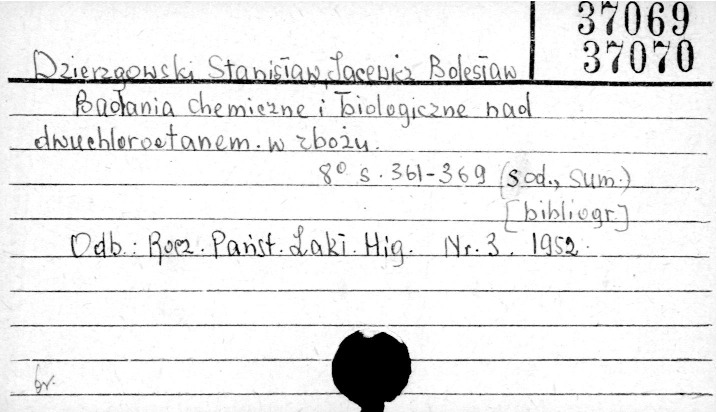 37069
37070
Dzierzgowski Stanisław, Jacewicz Bolesław
Badania chemiczne i biologiczne nad
dwuchloroetanem. w zbożu.
8° s. 361-369 (sod., sum.)
[bibliogr.]
Odb.: Rocz. Państ. Zakł. Hig. Nr. 3. 1952.
br.